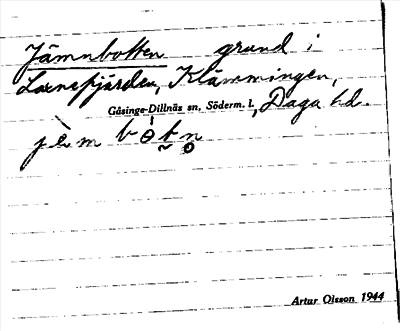 Jämnbotten grund i
Lornefjärden, Klämmingen,
Gåsinge-Dillnäs sn, Söderm. l., Daga hd.
jèm bòtn
Artur Olsson 1944